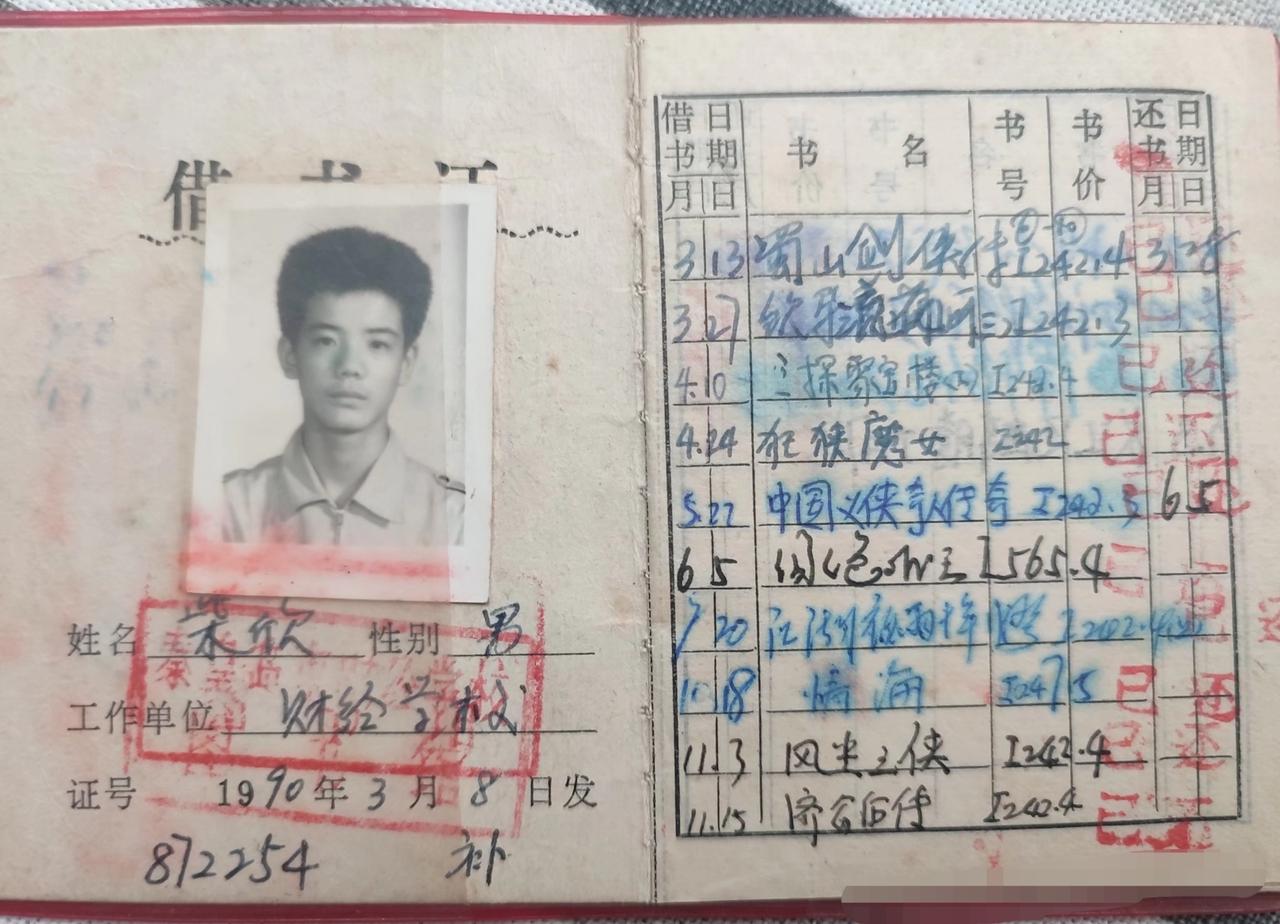 借书证
姓名 柴欣 性别 男
工作单位 财经学校
证号 1990年3月8日发
872254 补
借书日期 书名 书号 书价 还书日期
月 日 月 日
3 13 蜀山剑侠传 I242.4 3 28
3 27 I242.3
4.10 三探聚宝楼 I242.4 已还
4.24 狂侠魔女 I242 已还
5.22 中国义侠奇人传奇 I242.3 6 5
6 5 I565.4 已
20 江湖夜雨十年灯 I242.4
10.18 情海 I247.5 已还
11.3 风尘三侠 I242.4 已还
11.15 济公后传 I242.4 已还